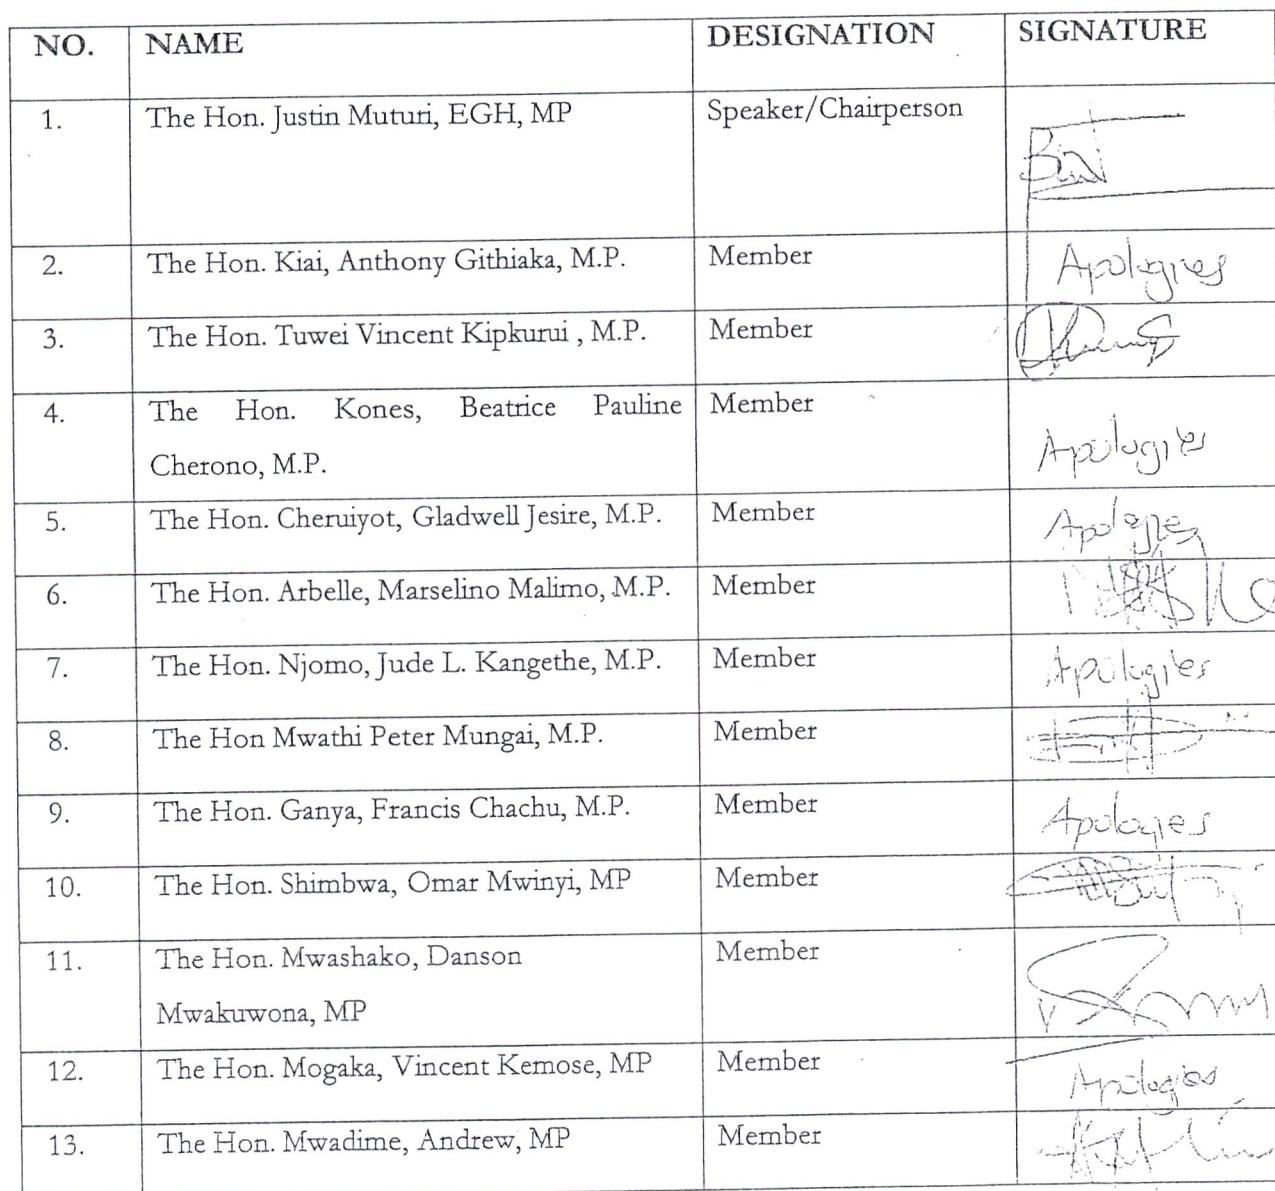 NO. NAME DESIGNATION SIGNATURE
1. The Hon. Justin Muturi, EGH, MP Speaker/Chairperson
2. The Hon. Kiai, Anthony Githiaka, M.P. Member Apologies
3. The Hon. Tuwei Vincent Kipkurui , M.P. Member
4. The Hon. Kones, Beatrice Pauline Member
Cherono, M.P. Apologies
5. The Hon. Cheruiyot, Gladwell Jesire, M.P. Member Apologies
6. The Hon. Arbelle, Marselino Malimo, M.P. Member
7. The Hon. Njomo, Jude L. Kangethe, M.P. Member Apologies
8. The Hon Mwathi Peter Mungai, M.P. Member
9. The Hon. Ganya, Francis Chachu, M.P. Member Apologies
10. The Hon. Shimbwa, Omar Mwinyi, MP Member
11. The Hon. Mwashako, Danson Member
Mwakuwona, MP
12. The Hon. Mogaka, Vincent Kemose, MP Member Apologies
13. The Hon. Mwadime, Andrew, MP Member